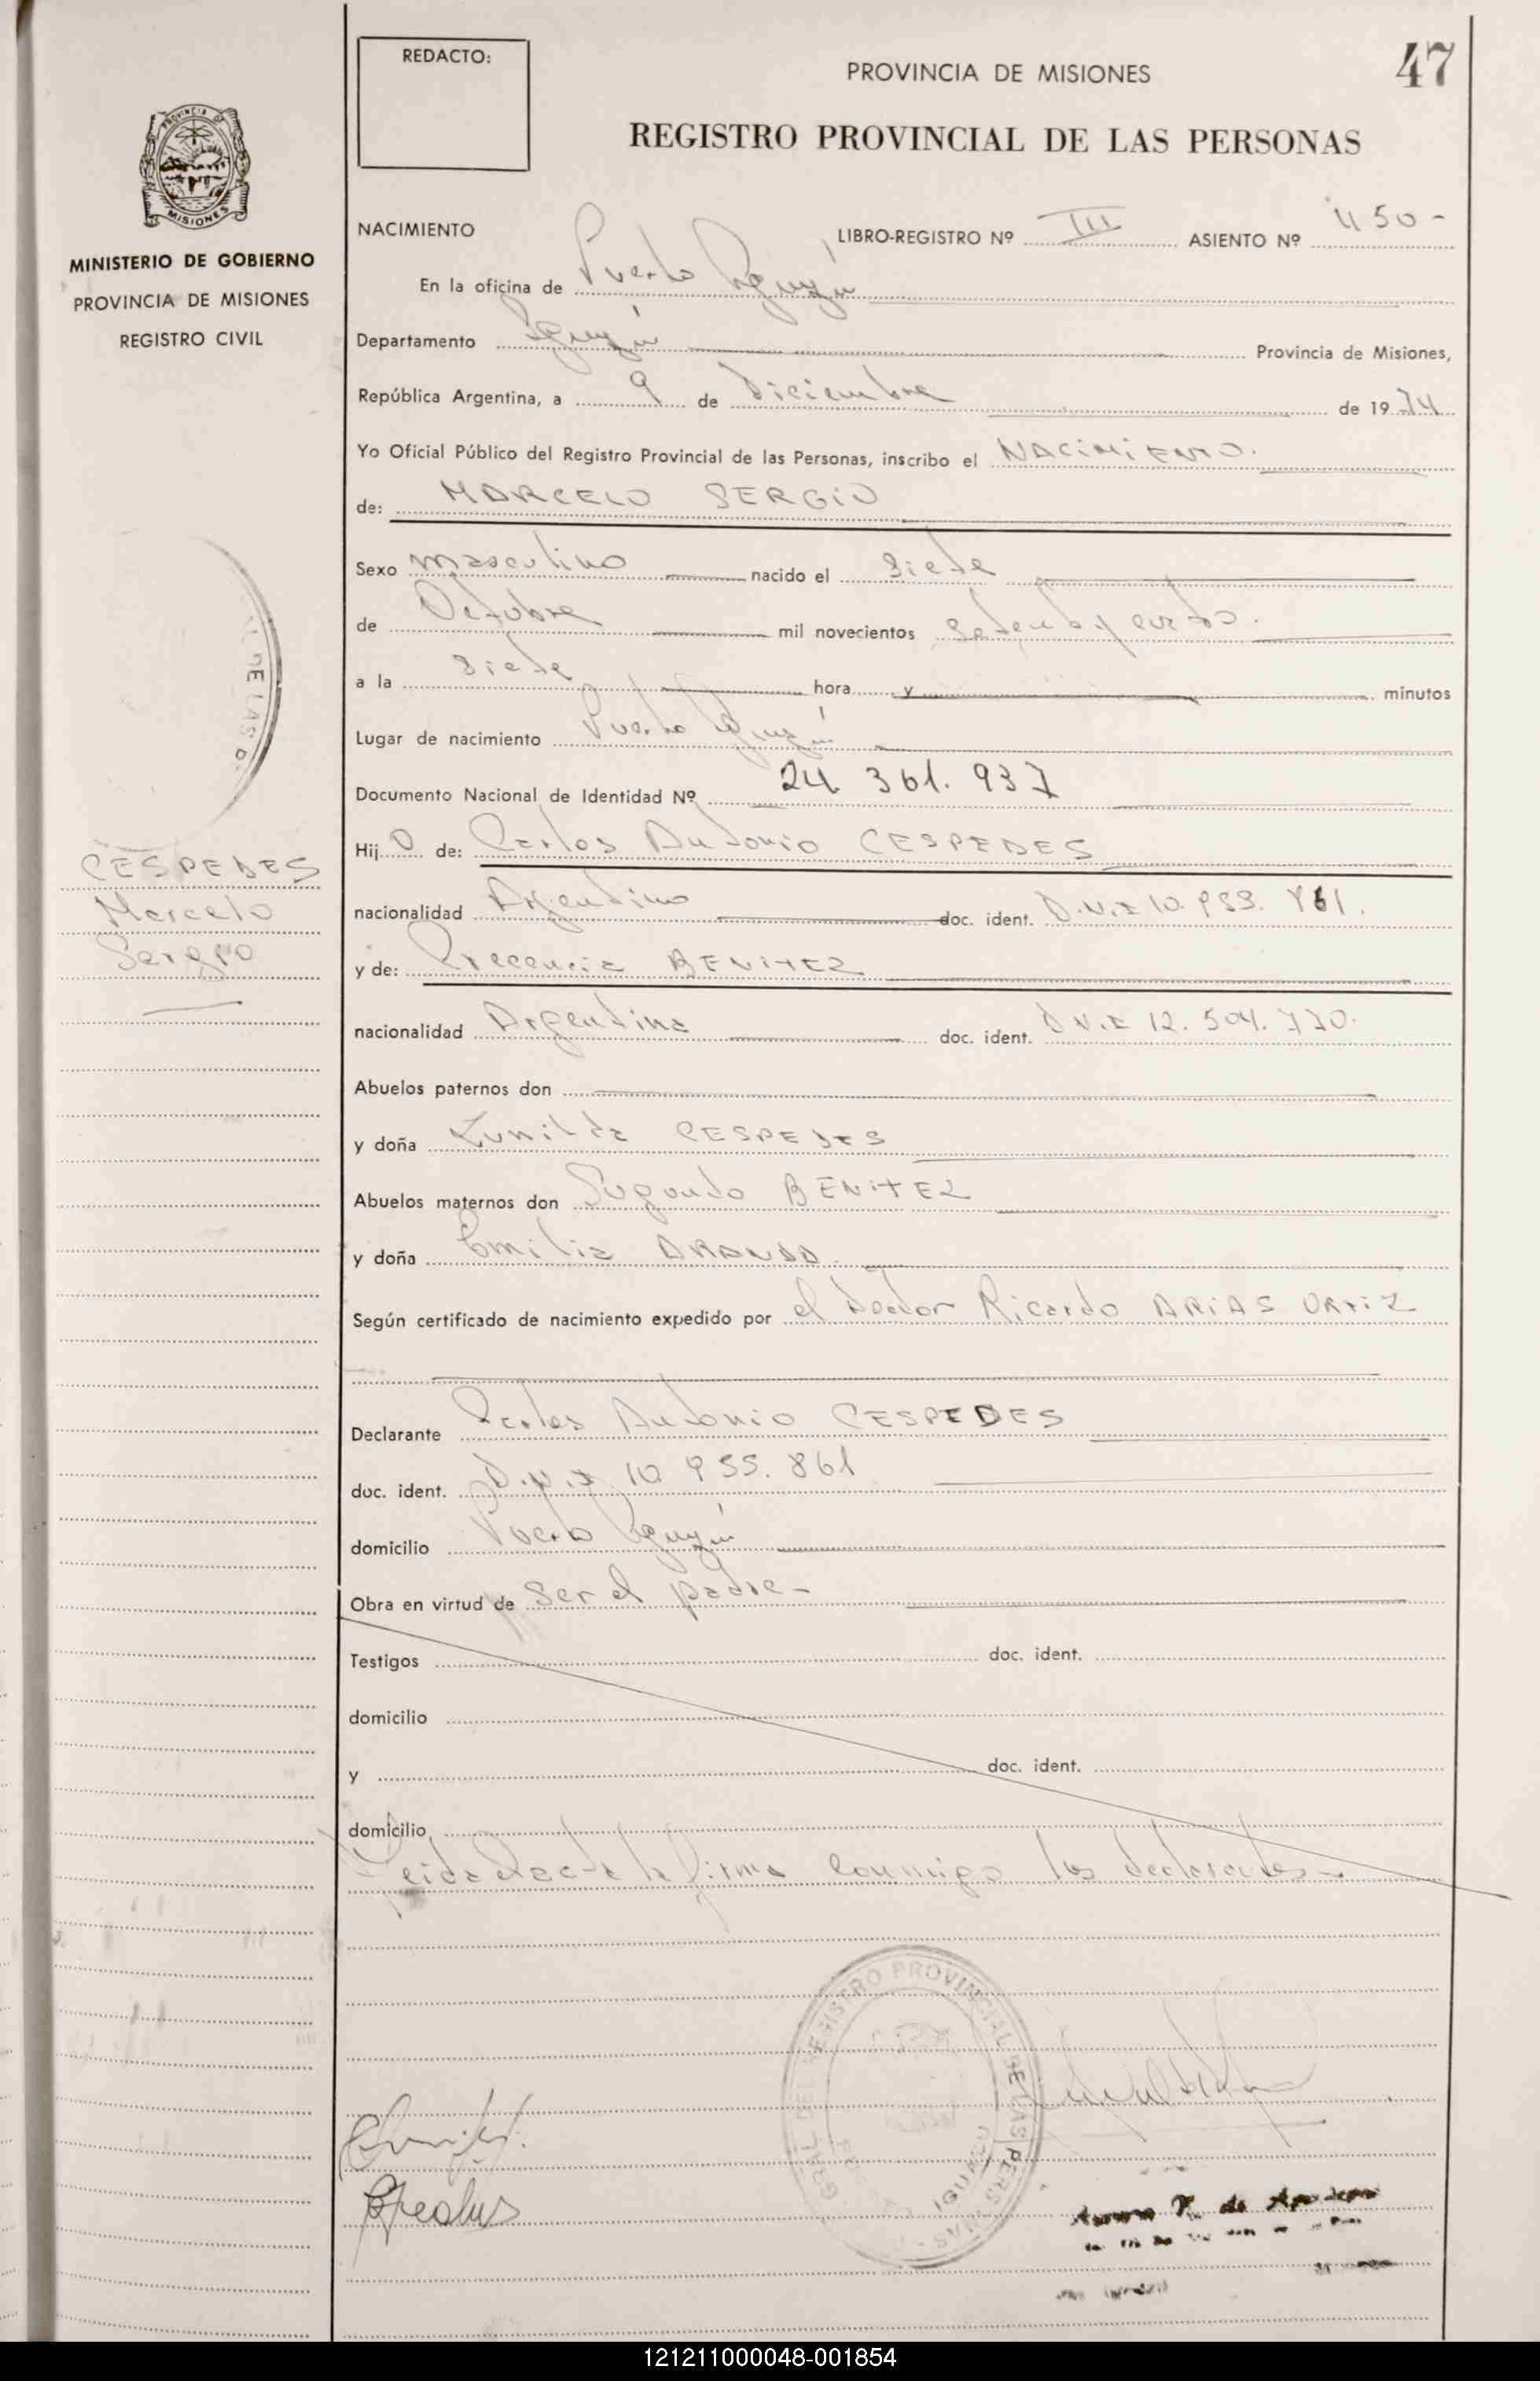 REDACTO:
PROVINCIA DE MISIONES
47
REGISTRO PROVINCIAL DE LAS PERSONAS
MISIONES
MINISTERIO DE GOBIERNO
PROVINCIA DE MISIONES
REGISTRO CIVIL
NACIMIENTO LIBRO-REGISTRO Nº III ASIENTO Nº 450-
En la oficina de Puerto Iguazú
Departamento Iguazú Provincia de Misiones,
República Argentina, a 9 de Diciembre de 1974
Yo Oficial Público del Registro Provincial de las Personas, inscribo el NACIMIENTO.
de: MARCELO SERGIO
Sexo masculino nacido el Siete
de Octubre mil novecientos setenta y cuatro.
a la siete hora y minutos
Lugar de nacimiento Puerto Iguazú
Documento Nacional de Identidad Nº 24 361.937
Hijo de: Carlos Antonio CESPEDES
CESPEDES
Marcelo
Sergio
nacionalidad Argentino doc. ident. D.N.I 10.955.861.
y de: Crecencia BENITEZ
nacionalidad Argentina doc. ident. D N.I 12.504.770.
Abuelos paternos don
y doña Zunilda CESPEDES
Abuelos maternos don Segundo BENITEZ
y doña Emilia ARANDA.
Según certificado de nacimiento expedido por el Doctor Ricardo ARIAS ORTIZ
Declarante Carlos Antonio CESPEDES
doc. ident. D.N.I 10 955.861
domicilio Puerto Iguazú
Obra en virtud de ser el padre-
Testigos doc. ident.
domicilio
y doc. ident.
domicilio
Leida el acta la firma conmigo los declarantes-
GRAL DEL REGISTRO PROVINCIAL DE LAS PERSONAS
121211000048-001854